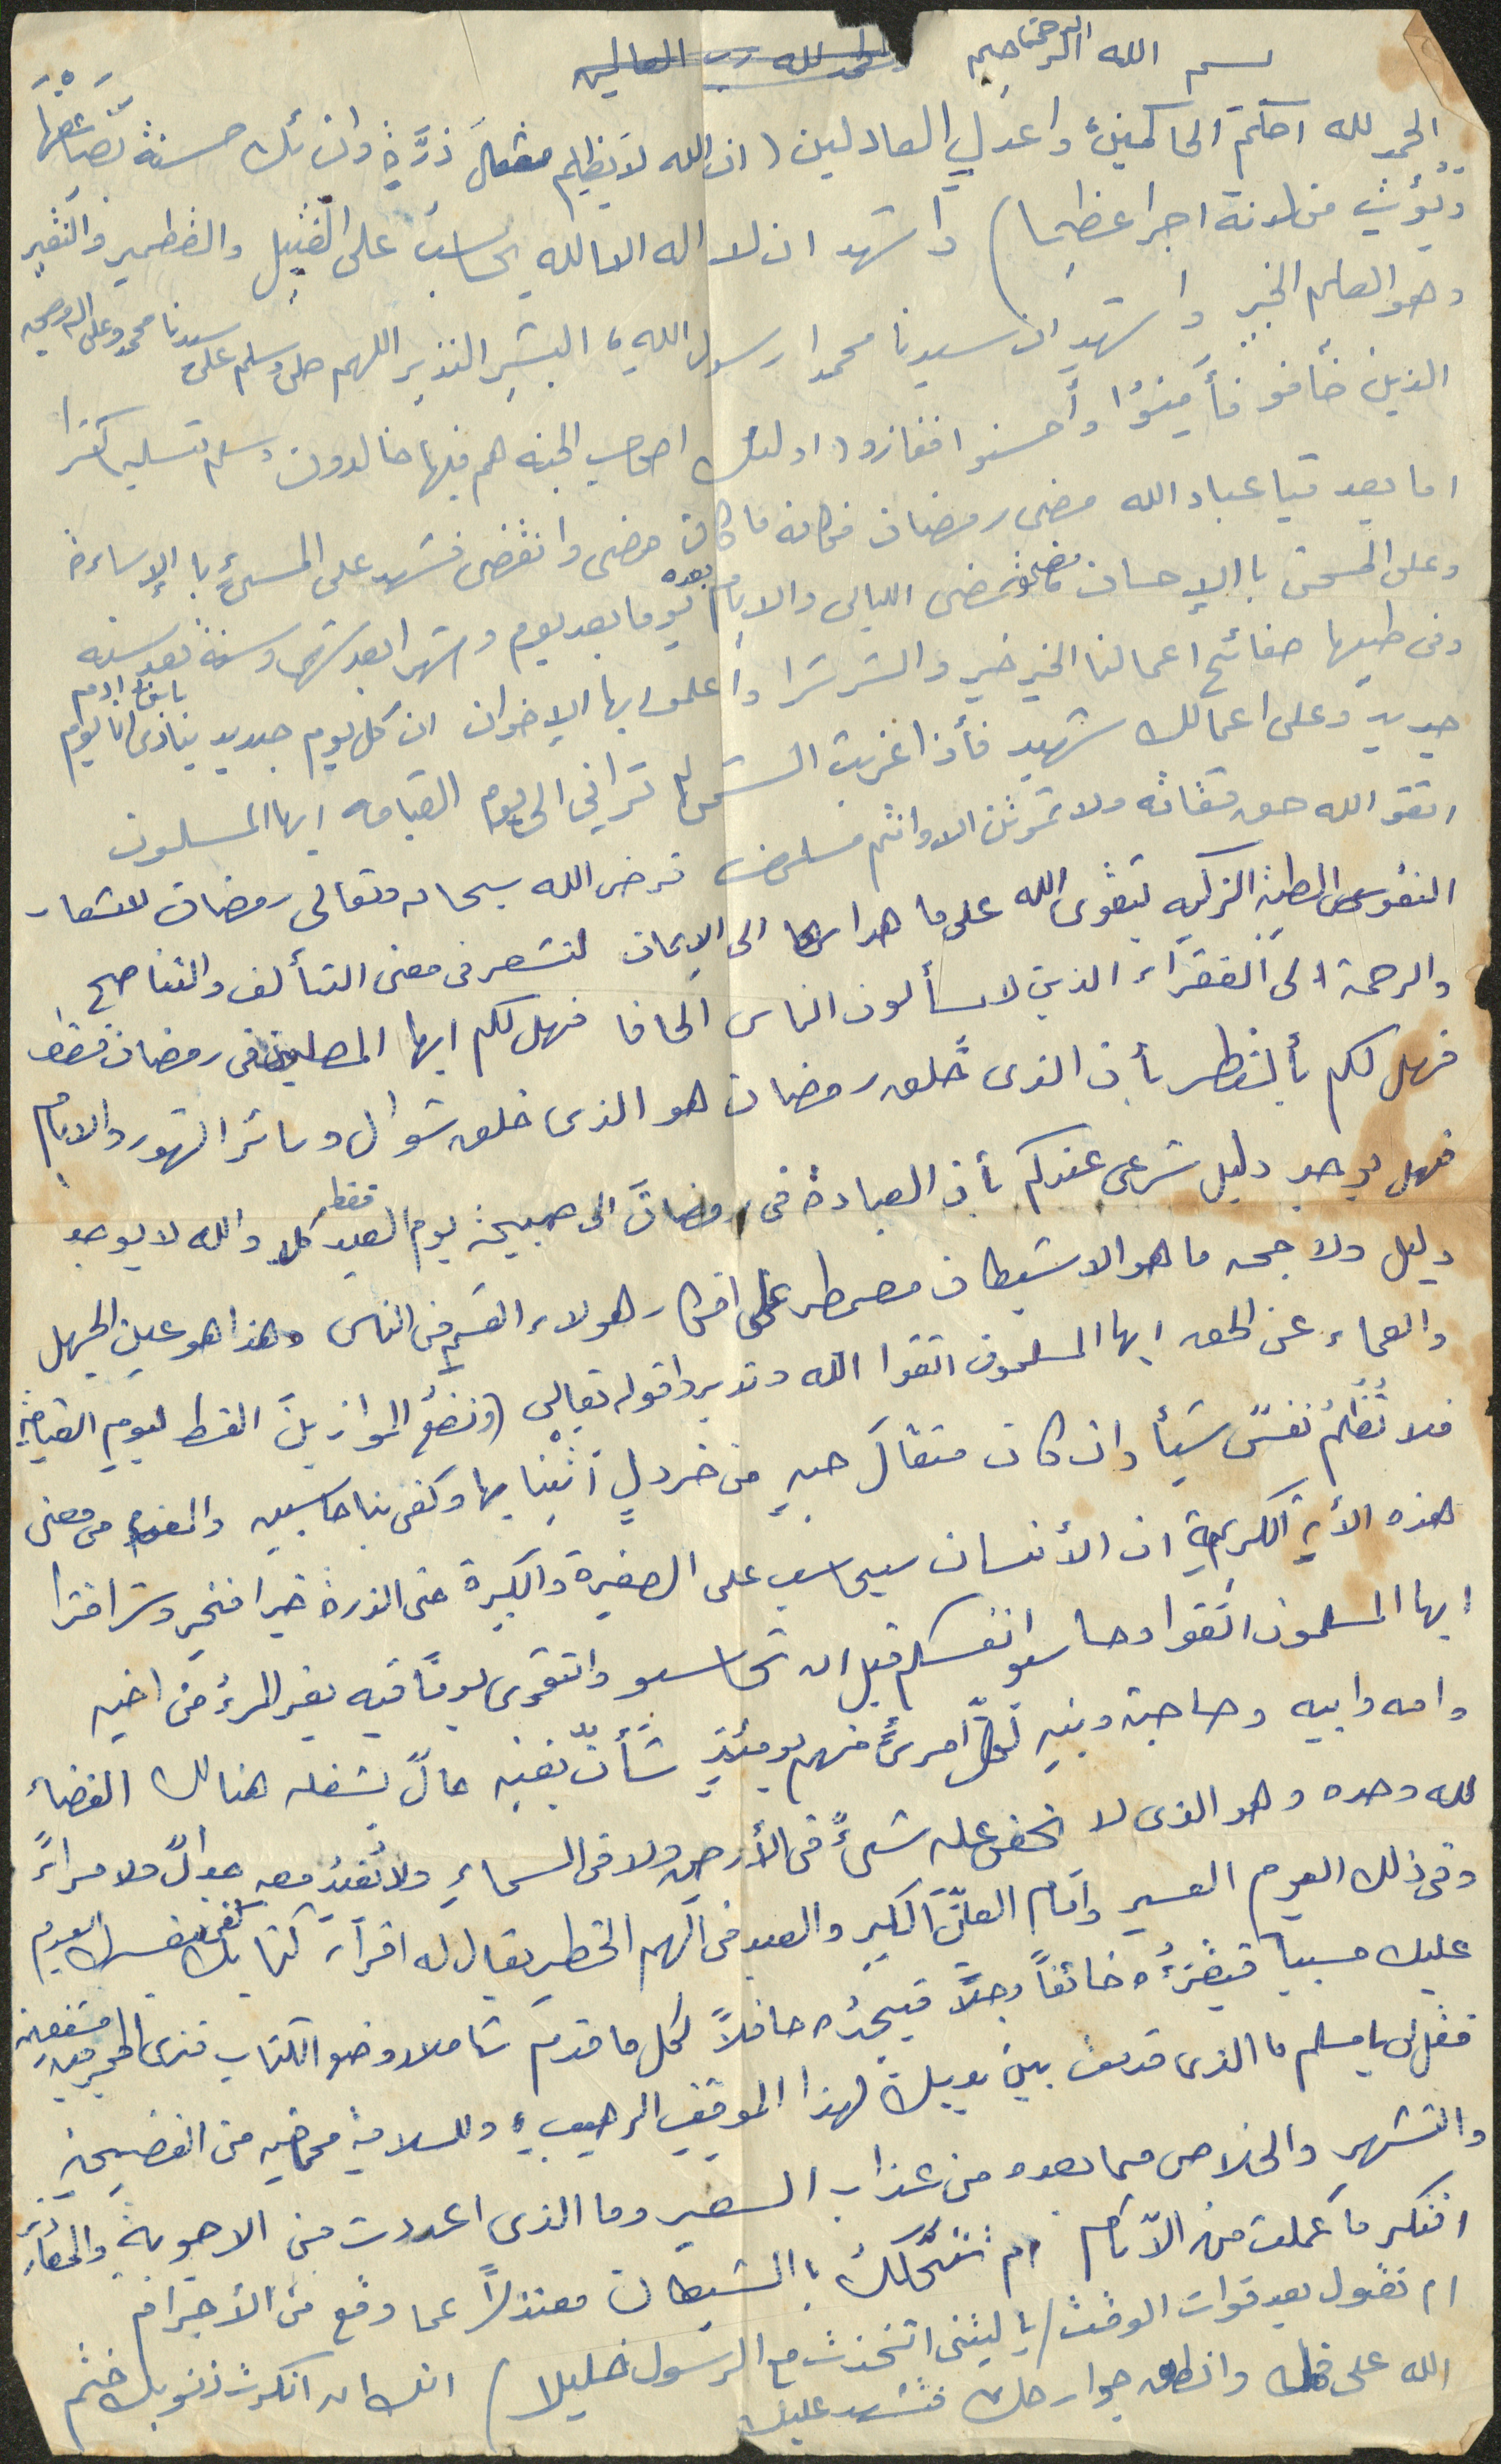 بسم الله الرحمن الرحيم والحمد لله رب العالمين
الحمد لله احكم الحاكمين واعدل العادلين (ان الله لا يظلم مثقال ذرة وان تك حسنة يضاعفها
ويؤت من لدنه اجرا عظيما) واشهد ان لا اله الا الله يحاسب على الفتيل والقطمير والنقير
وهو العليم الخبير واشهد ان سيدنا محمدا رسول الله البشير النذير اللهم صلى وسلم على سيدنا محمد وعلى اله وصحبه
الذين خافو فأمنوا وأحسنوا ففازوا (اولئك اصحاب الجنه هم فيها خالدون وسلم تسليما كثيرا
اما بعد فيا عباد الله مضى رمضان فكانه ما كان مضى وانقضى فشهد على المسئ بالإساءة
وعلى المحسن باالإحسان تمضى الليالى والايام بعده يوما بعد يوم وشهرا بعد شهر وسنة بعد سنه
وفى طيها صفائح اعمالنا الخير خير والشر شرا واعلموا ايها الاخوان ان كل يوم جديد ينادى يا ابن ادم انا يوم
جديد وعلى اعمالك شهيد فأذا غربت الشمس لم ترانى الى يوم القيامه ايها المسلمون
اتقو الله حق تقاته ولا تموتن الا وانتم مسلمون فرض الله سبحانه وتعالى رمضان لاشعار
النفوس المطيه الزكيه بتقوى الله على ما هداها الى الايمان لنشعر فى معنى التألف والتناصح
والرحمة الى الفقراء الذين لا يسألون الناس الحافا فهل لكم ايها المصلون فى رمضان فقط
فهل لكم بألنظر بأن الذى خلق رمضان هو الذى خلق شوال وسائر الشهور والايام
فهل يوجد دليل شرعى عندكم بأن العبادة فى رمضان الى صبيحة يوم العيد فقط كلا والله لا يوجد
دليل ولا حجه ما هو الا شيطان مصمطر على افكار هولاء القسم فى الناس وهذا هو عين الجهل
والعماء عن الحق ايها المسلمون اتقوا الله وتدبروا قوله تعالى (ونضع الموازين القسط ليوم القيامة
فلا تظلم نفس شيأ وان كان مثقال حبه من خردل أتينا بها وكفى بنا حاسبين والمفهوم من معنى
هذه الأية الكريمة ان الأنسان سيحاسب على الصغيرة والكبيرة حتى الذرة خيرا فخير وشرا فشرا
ايها المسلمون اتقوا وحاسبوا انفسكم قبل ان تحاسبو واتقوى يوما فيه يفر المرء من اخيه
وامه وابيه وصاحبته وبنيه لكل امرئ منهم يومئذ شأن يغنيه حال يشغله هنالك القضاء
لله وحده وهو الذى لا تخفى عليه شئ فى الأرض ولا فى السماء ولا يفيد معه جدال ولا مراء
وفى ذلك اليوم العسير وامام العلى الكبير والعبد فى الهم الخطير يقال له اقرأ كتابك كفى بنفسك اليوم
عليك حسيبا فيقرؤه خائفا وجلا فيجده حافلا لكل ما قدم شاملا ووضع الكتاب فترى المجرمين مشفقين
فقل لى يا مسلم ما الذى قدمت بين يديك لهذا الموقف الرهيب وللسلامة من الفضيحة
والتشهير والخلاص مما بعده من عذاب السعير وما الذى اعددت من الاجوبة والمعاذير
افتنكر ما عملت من الآثام ام تتحكك باالشيطان معتذرا عما وقع من الأجرام
ام تقول بعد فوات الوقت (يا ليتنى اتخذت مع الرسول خليلا) انك ان انكرت ذنوبك ختم
الله على فمك وانطق جوارحك فتشهد عليك